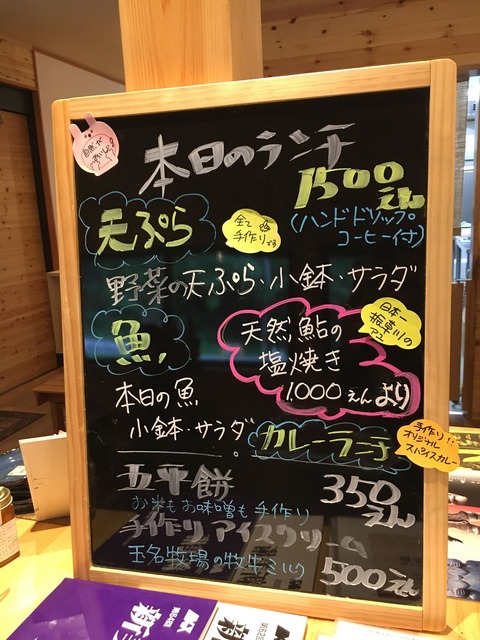 自然が
おいしい
本日のランチ
1500えん
(ハンドドリップ
コーヒー付)
天ぷら
全て
手作りです
野菜の天ぷら・小鉢・サラダ
魚
天然鮎の
塩焼き
1,000えんより
日本一
振草川の
アユ
本日の魚
小鉢・サラダ
カレーランチ
手作り!!
オリジナル
スパイスカレー
五平餅
350えん
お米もお味噌も手作り
手作りアイスクリーム
玉名牧場の牧牛ミルク
500えん
新